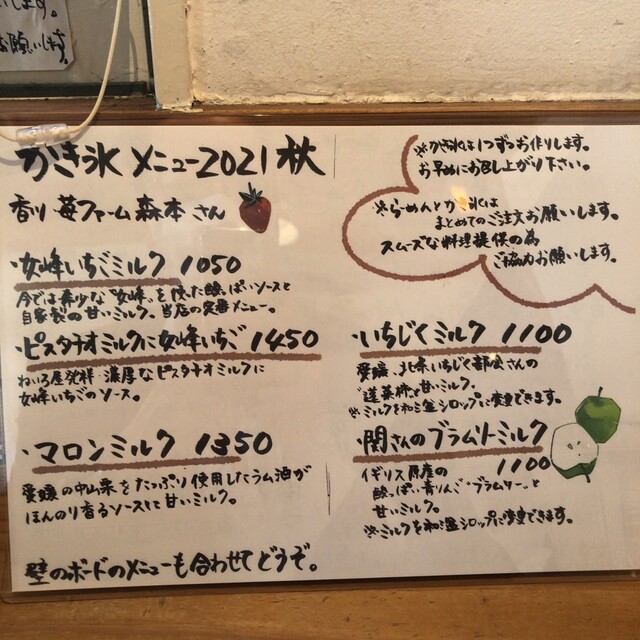 します。
お願いします。
かき氷メニュー2021秋
香川 苺ファーム森本さん
・女峰いちごミルク 1050
今では希少な"女峰"を使た酸っぱいソースと
自家製の甘いミルク。当店の定番メニュー。
ピスタチオミルクに女峰いちご 1450
ねいろ屋発祥 濃厚なピスタチオミルクに
女峰いちごのソース。
・マロンミルク 1350
愛媛の中山栗をたっぷり使用したラム酒が
ほんのり香るソースと甘いミルク。
壁のボードのメニューも合わせてどうぞ。
※かき氷は1つずつお作りします。
お早めにお召し上がり下さい。
※らーめんとかき氷は
まとめてのご注文お願いします。
スムーズな料理提供の為
ご協力お願いします。
・いちじくミルク 1100
愛媛、北条いちじく部会さんの
"蓬莱柿"と甘いミルク。
※ミルクを和三盆シロップに変更できます。
・関さんのブラムリーミルク
1100
イギリス原産の
酸っぱい青りんご"ブラムリー"と
甘いミルク。
※ミルクを和三盆シロップに変更できます。